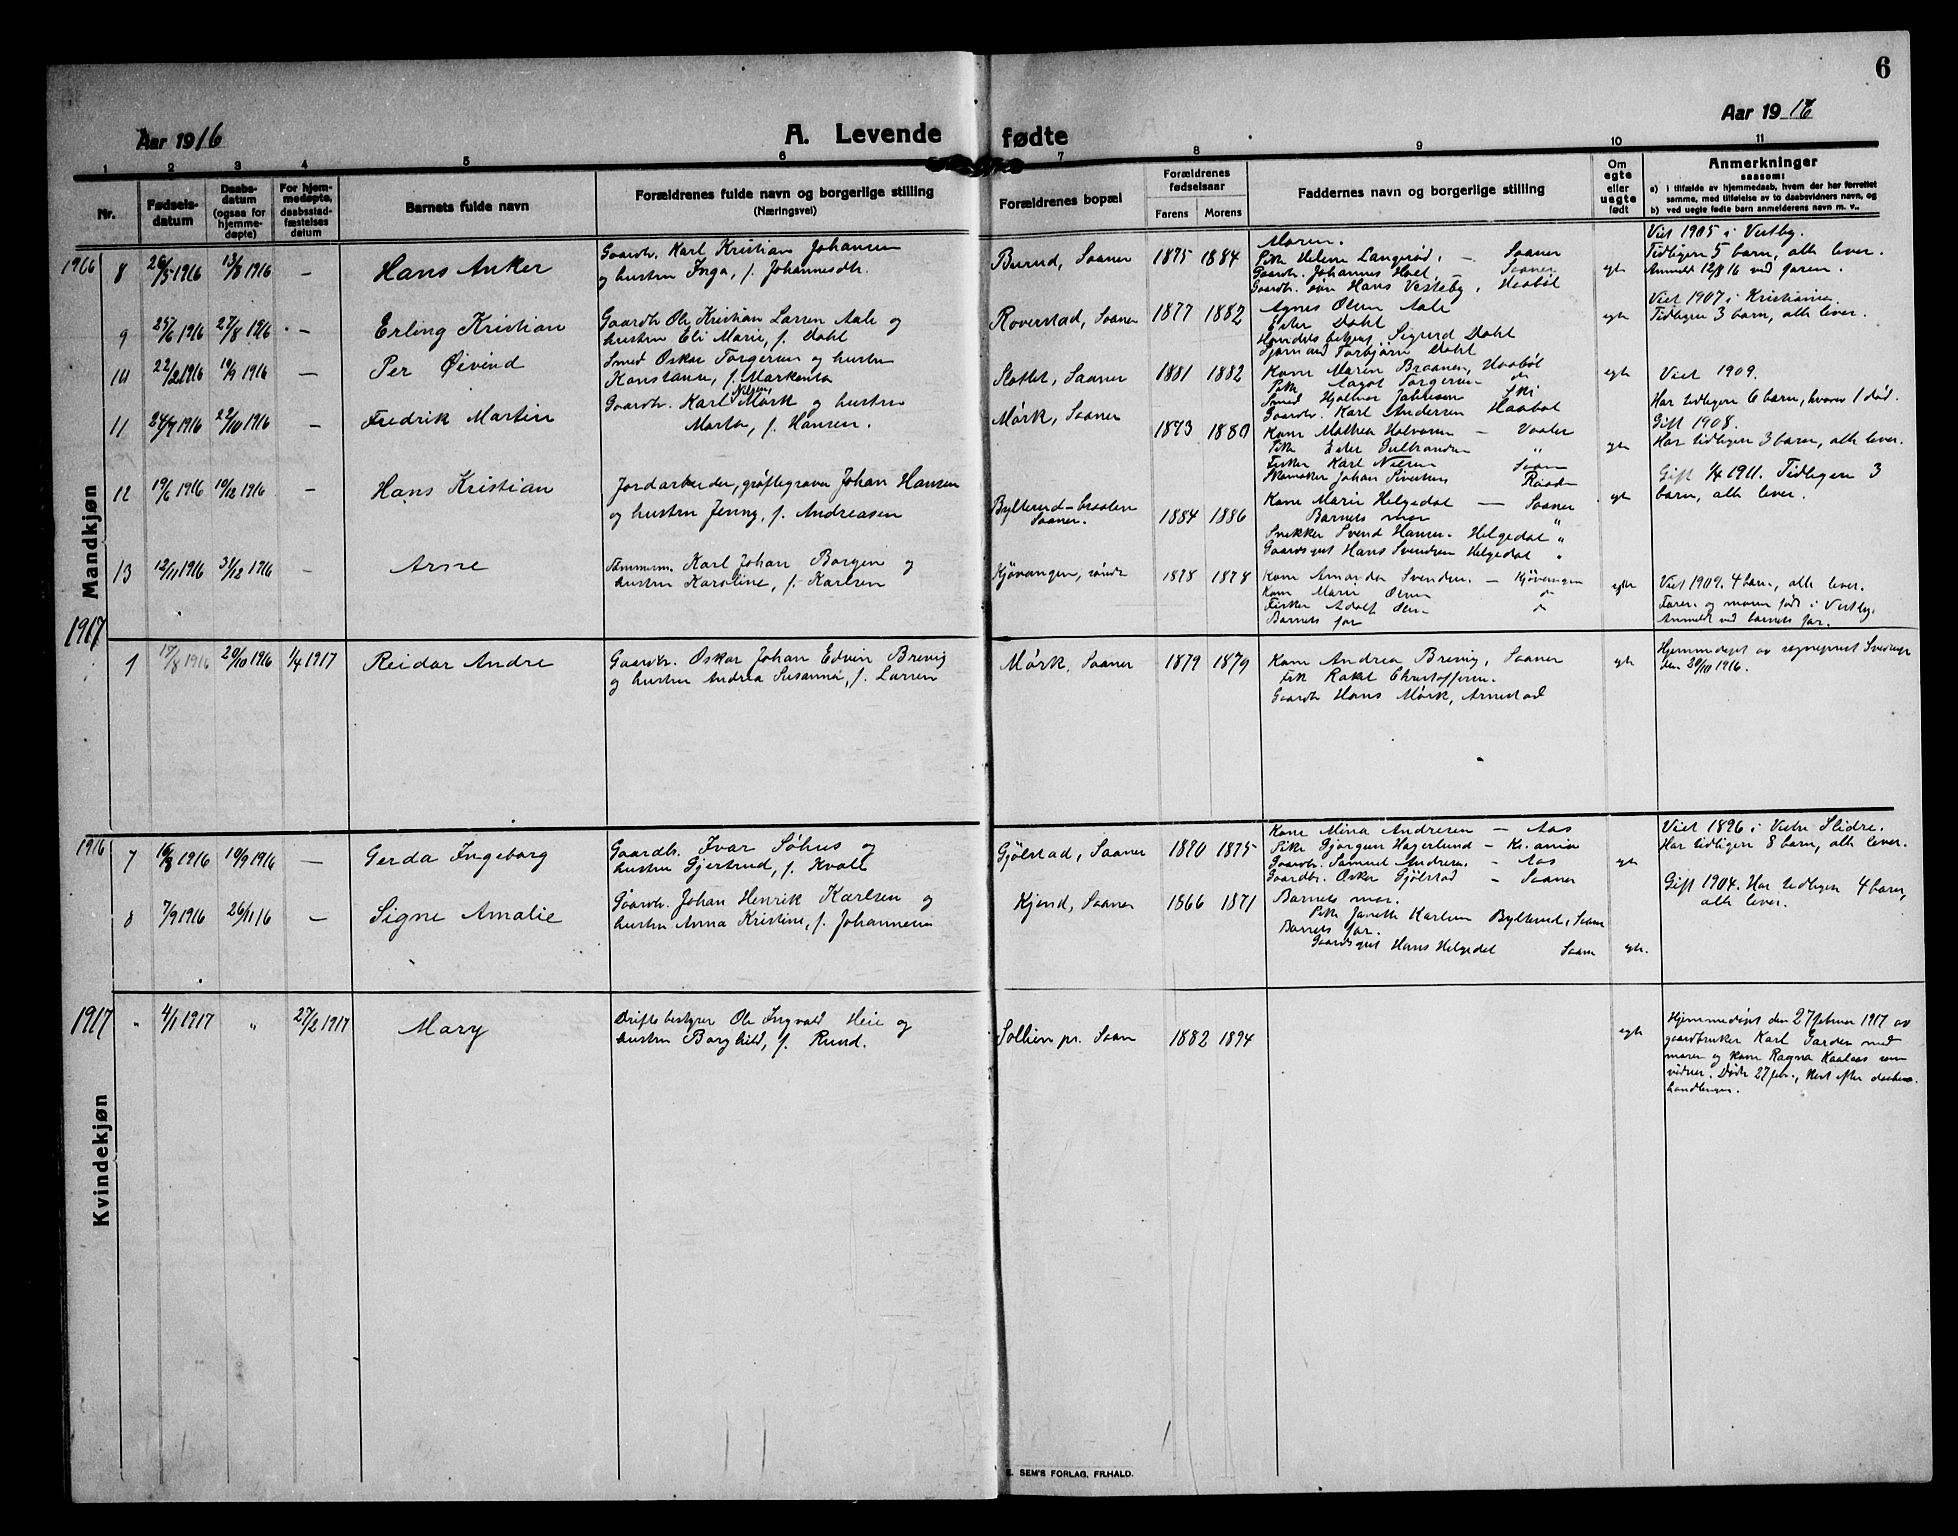 6
Aar 1916
A. Levende fødte
Aar 1916
1 2 3 4 5 6 7 8 9 10 11
Nr.
Fødsels-
datum
Daabs-
datum
(ogsaa for
hjemme-
døpte)
For hjem-
medøpte,
daabsstad-
fæstelses
datum
Barnets fulde navn
Forældrenes fulde navn og borgerlige stilling
(Næringsvei)
Forældrenes bopæl
Forældrenes
fødselsaar
Farens Morens
Faddernes navn og borgerlige stilling
Om
egte
eller
uegte
født
Anmerkninger
saasom:
a) i tilfælde av hjemmedaab, hvem der har forrettet
samme, med tilføielse av to daabsvidners navn, og
b) ved uegte fødte barn anmelderens navn m. v..
Mandkjøn
1916
8 26/5 1916 13/8 1916 — Hans Anker
Gaardbr. Karl Kristian Johansen
og hustru Inga, f. Johannesdtr.
Burud, Saaner 1875 1884
Moren.
Pike Helene Langerød, — Saaner
Gaardbr. Johannes Hoel — Saaner
Gaardbr. søn Hans Vestby, Haabøl
egte
Viet 1905 i Vestby.
Tidligere 5 barn, alle lever.
Anmeldt 12/8 16 ved faren.
9 25/6 1916 27/8 1916 — Erling Kristian
Gaardbr. Ole Kristian Larsen Aale og
hustru Eli Marie, f. Dahl
Roverstad, Saaner 1877 1882
Agnes Olsen Aale
Ester Dahl
Handelsbetjent Sigurd Dahl
Sjømand Torbjørn Dahl
egte
Viet 1907 i Kristiania.
Tidligere 3 barn, alle lever.
10 22/2 1916 10/9 1916 — Per Øivind
Smed Oskar Torgersen og hustru
Konstanse, f. Markussen
Slottet, Saaner 1881 1882
Kone Maren Braanen, Haabøl
Pike Aagot Torgersen do
Smed Hjalmar Jakobsen Ski
Gaardbr. Karl Andersen Haabøl
egte
Viet 1909.
Har tidligere 6 barn, hvorav 1 død.
11 24/7 1916 22/10 1916 — Fredrik Martin
Gaardbr. Karl Nilsen Mørk og hustru
Marta, f. Hansen.
Mørk, Saaner 1873 1880
Kone Mathea Halvorsen — Vaaler
Pike Ester Gulbrandsen "
Fisker Karl Nilsen Saaner
Skomaker Johan Sivertsen Raade
egte
Gift 1908.
Har tidligere 3 barn, alle lever.
12 19/6 1916 10/12 1916 — Hans Kristian
Jordarbeider, grøftegraver Johan Hansen
og hustru Jenny, f. Andreasen
Bylterud-braaten
Saaner. 1884 1886
Kone Marie Helgedal — Saaner
Barnets mor
Snekker Svend Hansen Helgedal "
Gaardsgut Hans Svendsen Helgedal "
egte
Gift 1/4 1911. Tidligere 3
barn, alle lever.
13 12/11 1916 31/12 1916 — Arne
Tømmerm. Karl Johan Borgen og
hustru Karoline, f. Karlsen
Kjøvangen, søndre 1878 1878
Kone Amanda Svendsen — Kjøvangen
Kone Marie Olsen do
Fisker Adolf Olsen do
Barnets far
egte
Viet 1902. 4 barn, alle lever.
Faren og moren født i Vestby.
Anmeldt ved barnets far.
1917
1 17/8 1916 20/10 1916 1/4 1917 Reidar Andre
Gaardbr. Oskar Johan Edvin Brevig
og hustru Andrea Susanna, f. Larsen
Mørk, Saaner 1879 1879
Kone Andrea Brevig, Saaner
Pike Rakel Christoffersen.
Gaardbr Hans Mørk, Arnestad
egte
Hjemmedøpt av sogneprest
den 20/10 1916.
Kvindekjøn
1916
7 1916 10/9 1916 — Gerda Ingeborg
Gaardb. Ivar Søhus og
hustru Gjertrud, f. Kvale
Gjølstad, Saaner 1870 1875
Kone Mina Andresen — Aas
Pike Gjørgine Hagerlund — Kr.ania
Gaardbr. Samuel Andresen, — Aas
Gaardbr. Oskar Gjølstad — Saaner
egte
Viet 1896 i Vestre Slidre.
Har tidligere 8 barn, alle lever.
8 7/9 1916 26/11 16 — Signe Amalie
Gaardb. Johan Henrik Karlsen og
hustru Anna Kristine, f. Johannesen
Kjend, Saaner 1866 1871
Barnets mor.
Pike Janette Karlsen Bylterud, Saaner
Barnets far.
Gaardsgut Hans Helgedal Saaner
egte.
Gift 1904. Har tidligere 4 barn,
alle lever.
1917
" 4/1 1917 " 27/2 1917 Mary
Driftsbestyrer Ole Ingvald Heie og
hustru Borghild, f. Rund.
Sollien pr. Saaner 1882 1894
egte
Hjemmedøpt den 27 februar 1917 av
gaardbruker Karl Garder med
moren og kone Ragna Kaalaas som
vidner. Døde 27 febr., straks efter daabens
handlingen.
E. SEM'S FORLAG, FR.HALD.